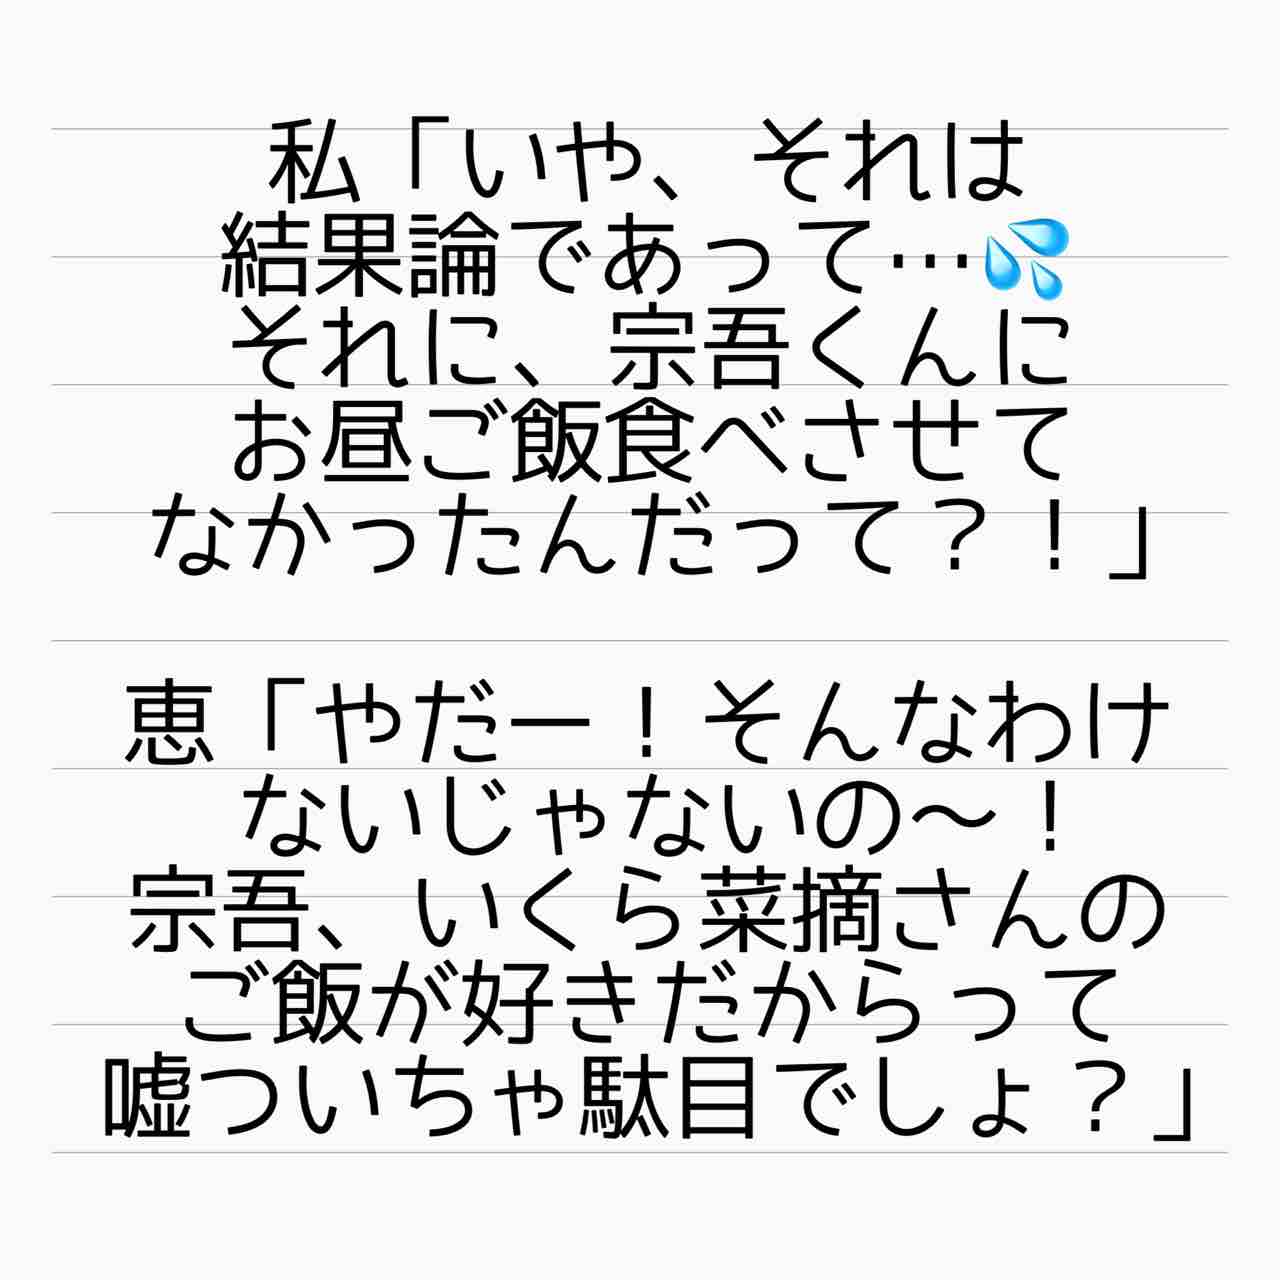 私「いや、それは
結果論であって…💦
それに、宗吾くんに
お昼ご飯食べさせて
なかったんだって？！」
恵「やだー！そんなわけ
ないじゃないの〜！
宗吾、いくら菜摘さんの
ご飯が好きだからって
嘘ついちゃ駄目でしょ？」